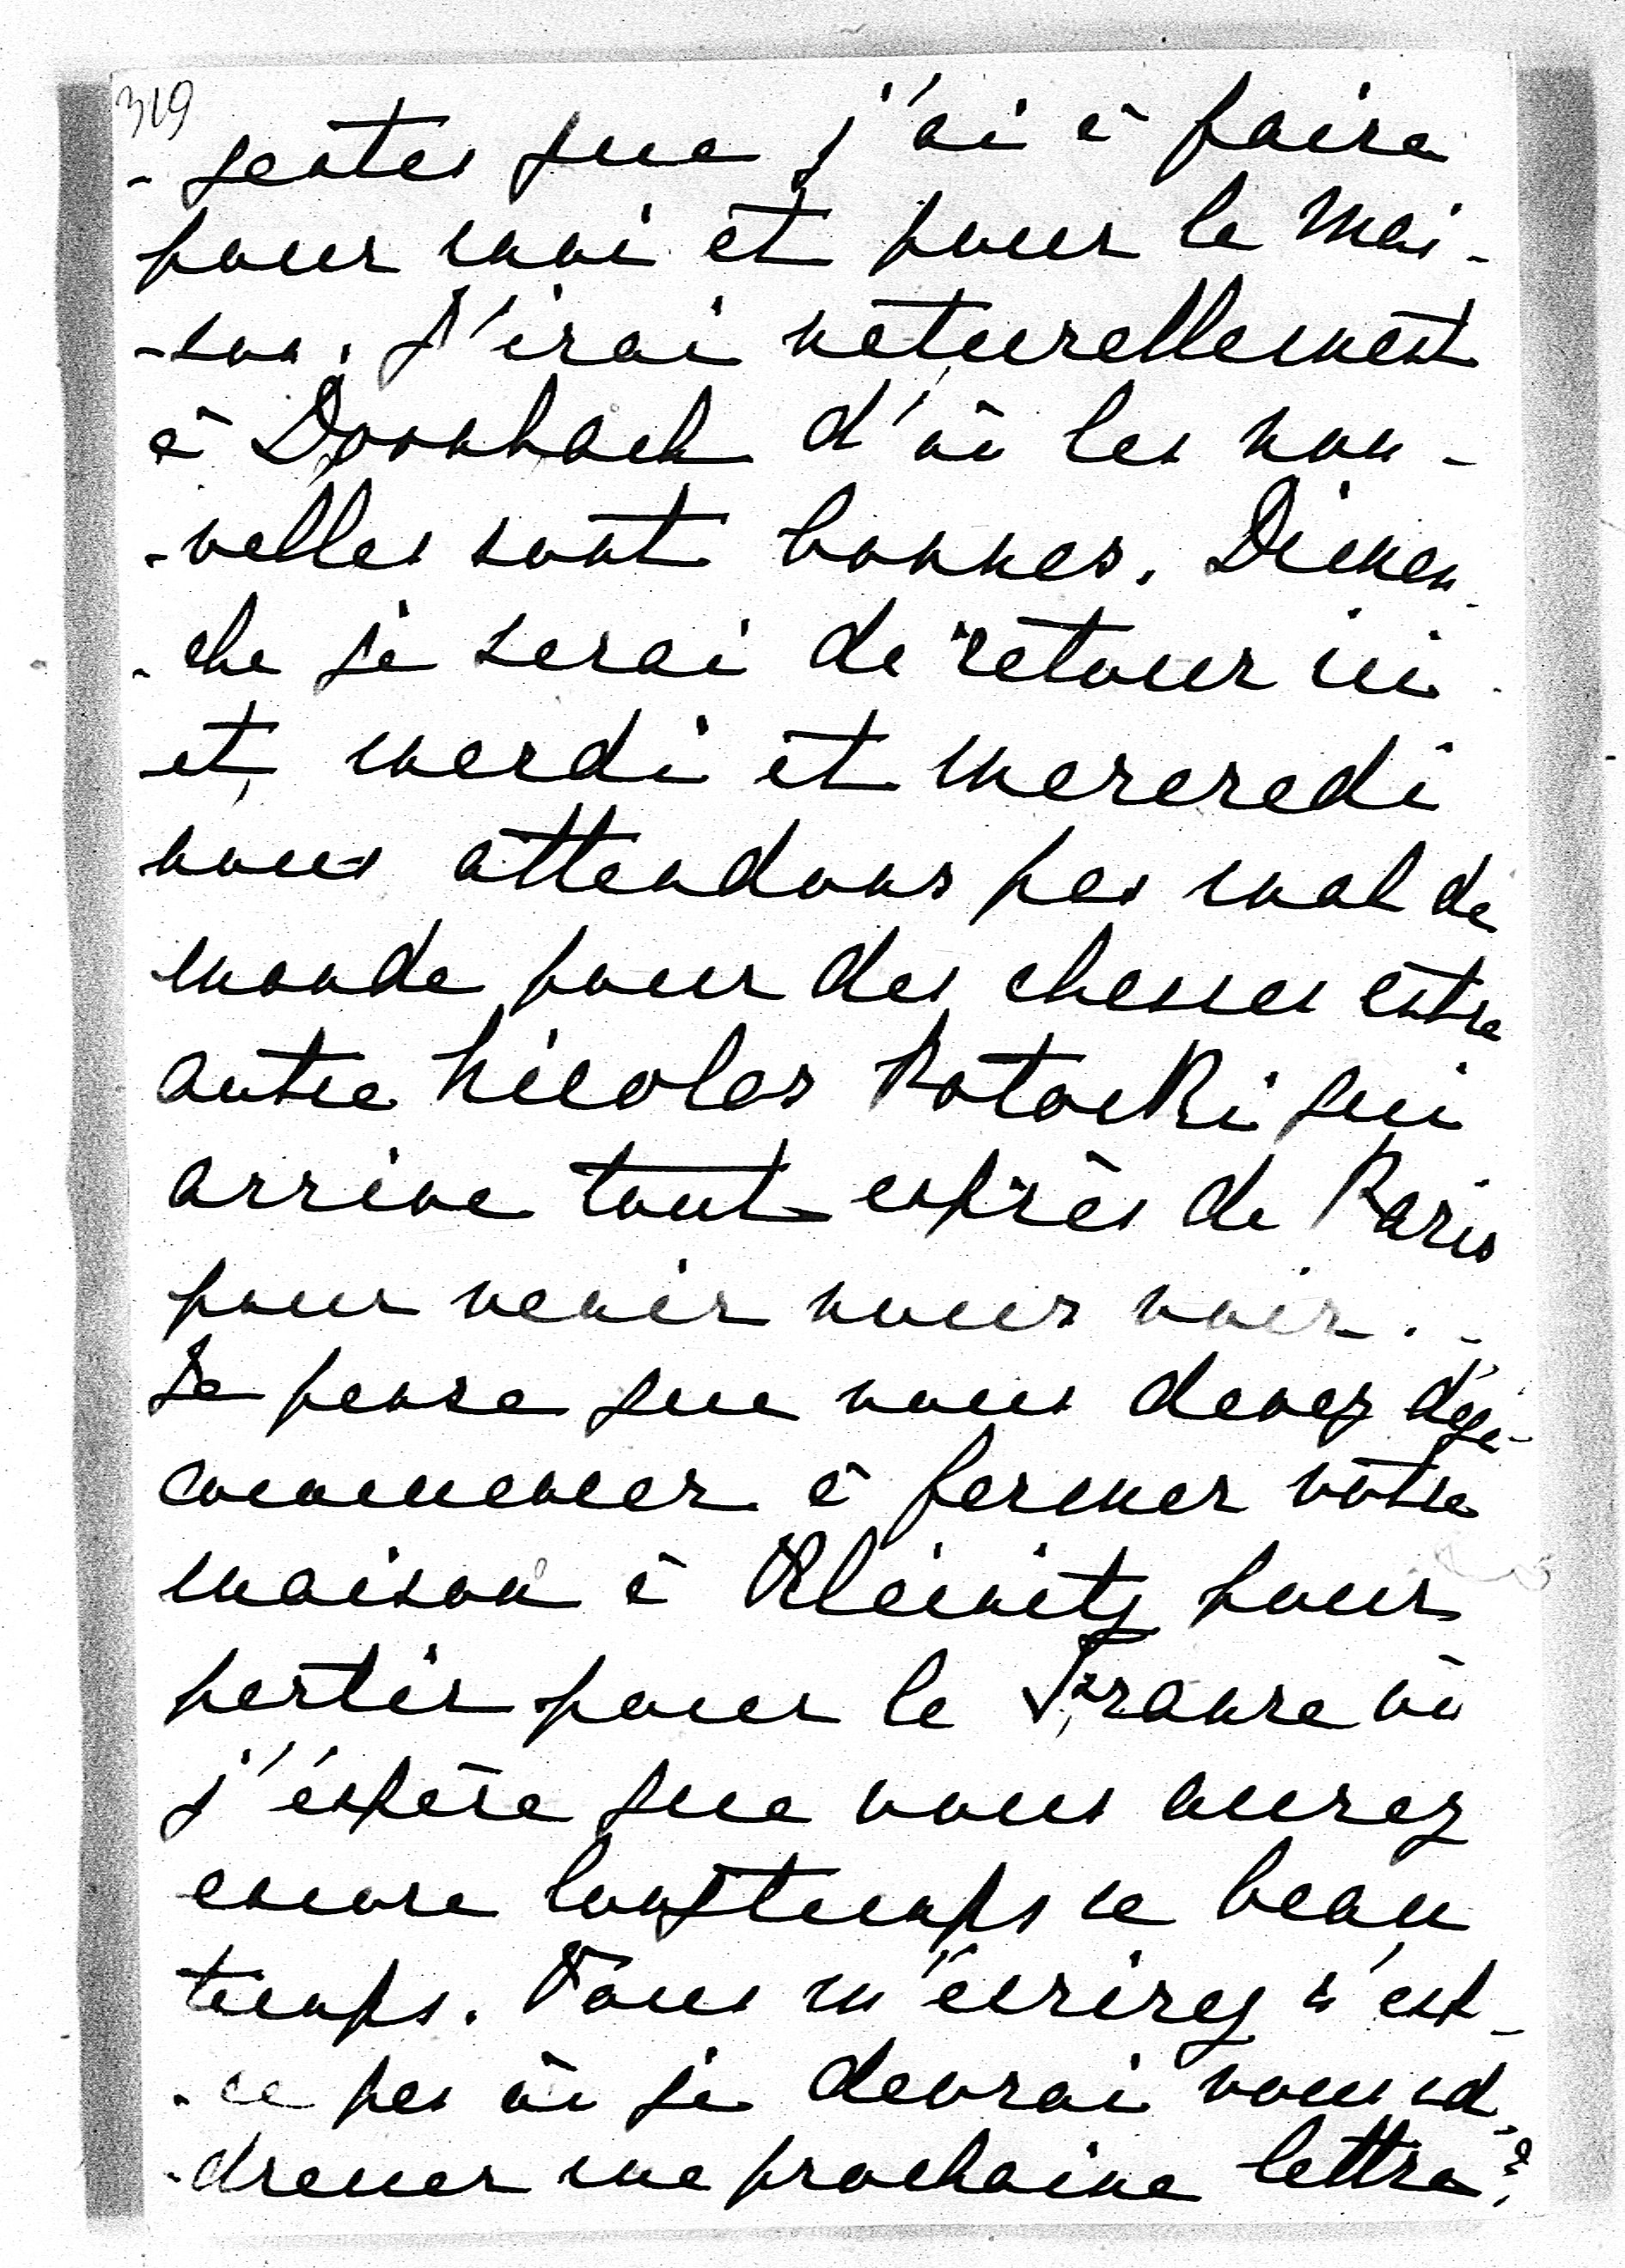 319
-gentes que j'ai à faire
pour moi et pour la mai-
-son. J'irai naturellement
à Dornbach d'où les nou-
-velles sont bonnes. Diman-
-che je serai de retour ici
et mardi et mercredi
nous attendons pas mal de
monde pour des chasses entre
autre Nicolas Potocki qui
arrive tout exprès de Paris
pour venir nous voir. -
Je pense que vous devez déjà
commencer à fermer votre
maison à Kleinitz pour
partir pour la France où
j'éspère que vous aurez
encore longtemps ce beau
temps. Vous m'écrirez n'est-
-ce pas où je devrai vous ad-
-dresser ma prochaine lettre?